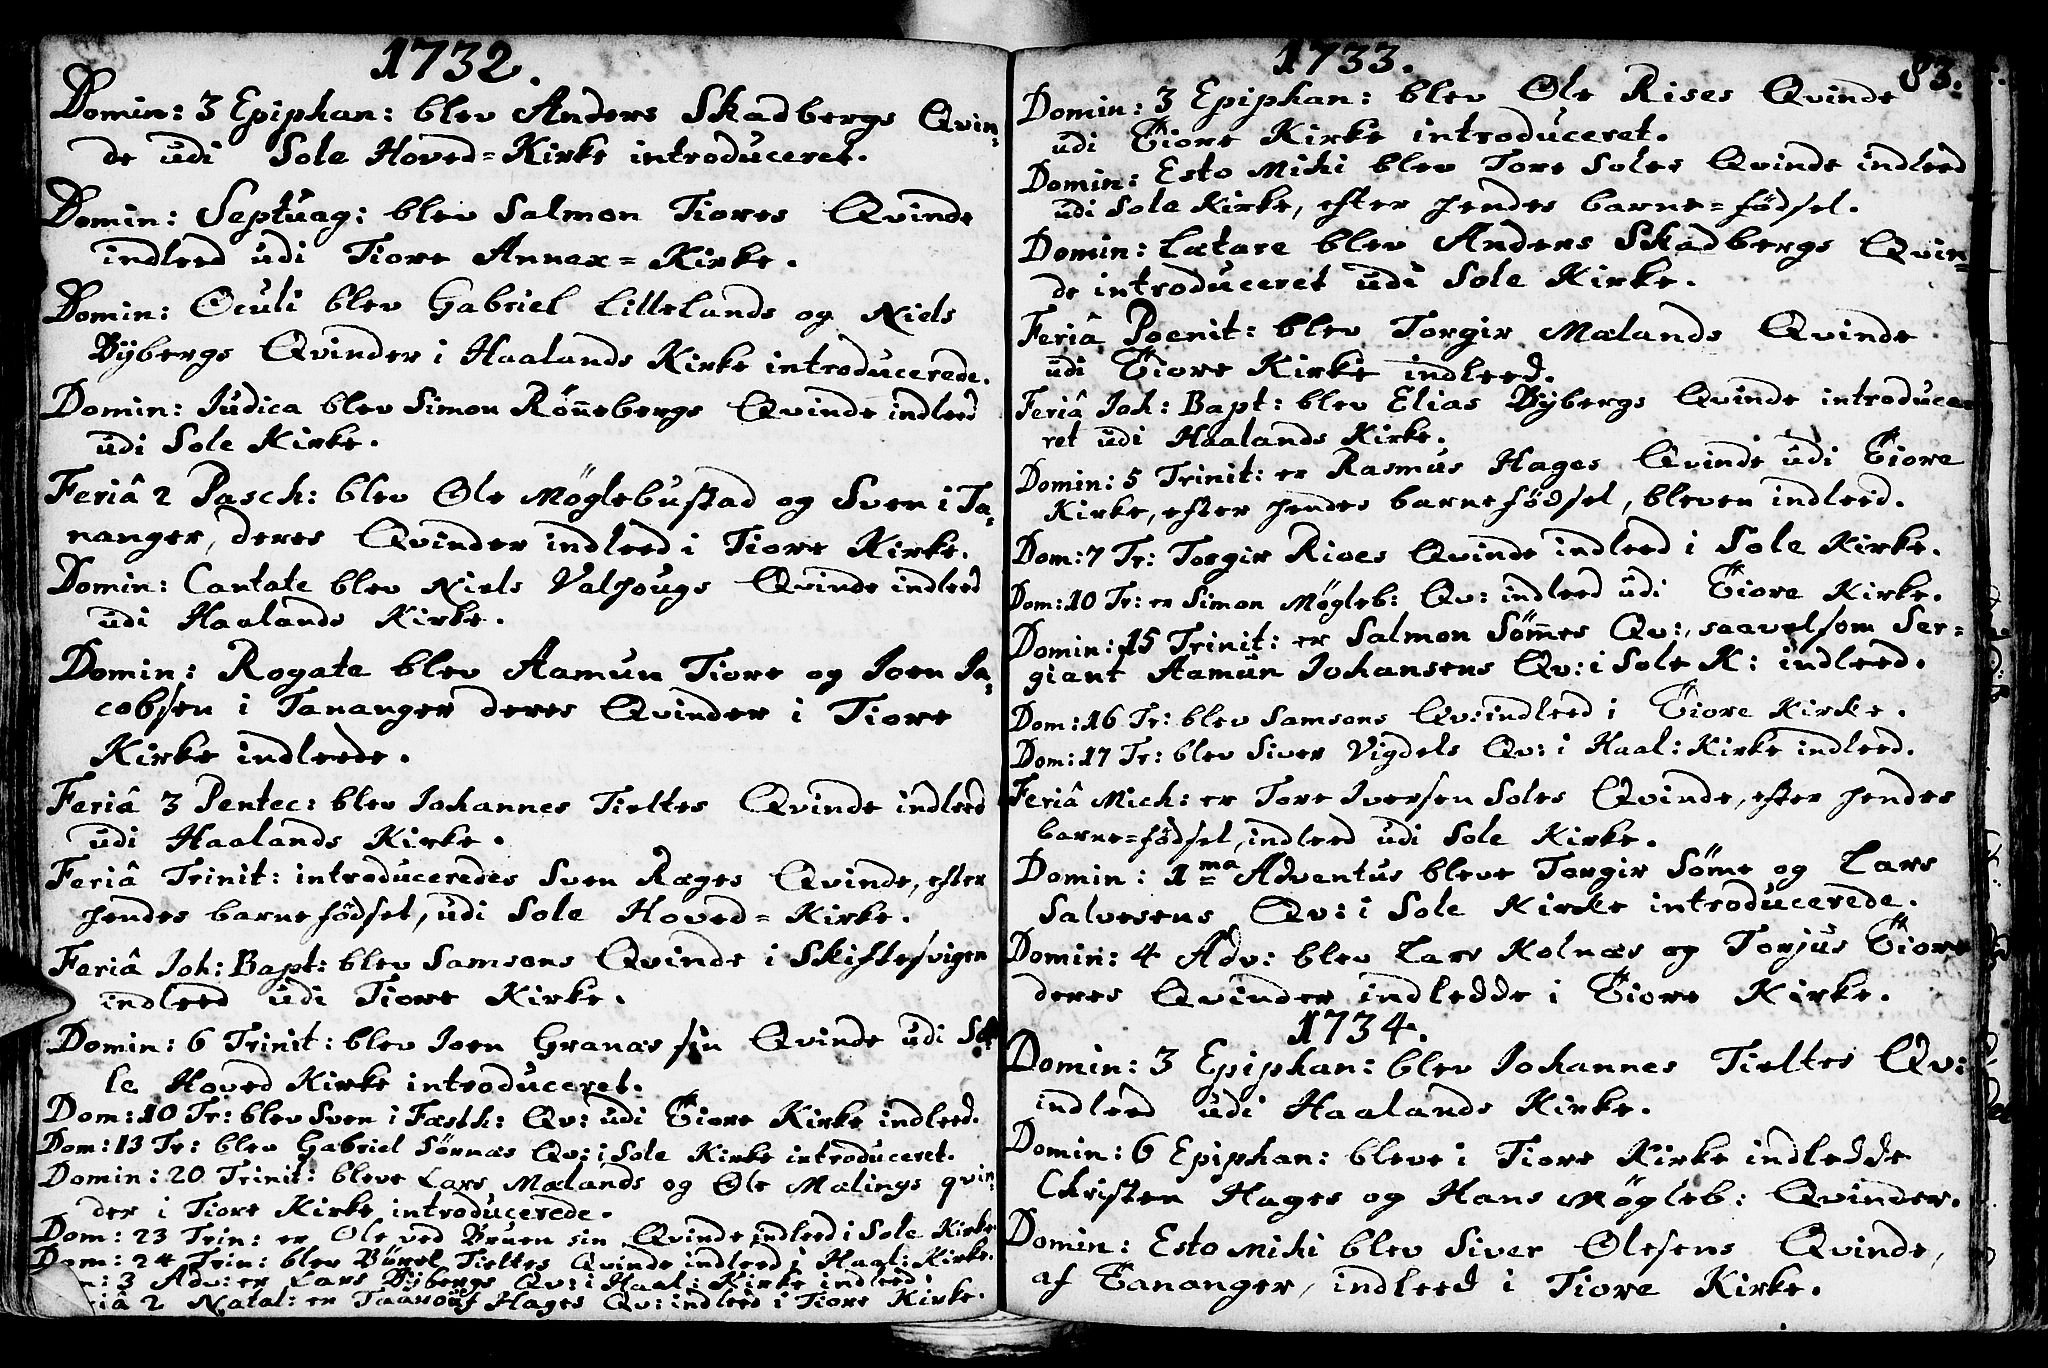 1732.
Domin: 3 Epiphan: blev Anders Skadbergs Qvin-
de udi Sole Hoved=Kirke introduceret.
Domin: Septuag: blev Salmon Tiores Qvinde
indleed udi Tiore Annax=Kirke.
Domin: Oculi blev Gabriel Lillelands og Niels
Bÿbergs Qvinder i Haalands Kirke introducerede.
Domin: Judica blev Simon Rönnebergs Qvinde indleed
udi Sole Kirke.
Feriâ 2 Pasch: blev Ole Möglebustad og Sven i Ta-
nanger, deres Qvinder indleed i Tiore Kirke.
Domin: Cantate blev Niels Valhougs Qvinde indleed
udi Haalands Kirke.
Domin: Rogate blev Aamun Tiore og Joen Ja-
cobsen i Tananger deres Qvinder i Tiore
Kirke indleede.
Feriâ 3 Pentec: blev Johannes Tieltes Qvinde indleed
udi Haalands Kirke.
Feriâ Trinit: introduceredes Sven Ræges Qvinde, efter
hendes barnefödsel, udi Sole Hoved=Kirke.
Feriâ Joh: Bapt: blev Samsons Qvinde i Skiftesvigen
indleed udi Tiore Kirke.
Domin: 6 Trinit: blev Joen Granæs sin Qvinde udi So-
le Hoved Kirke introduceret.
Dom: 10 Tr: blev Sven i Fæsth: Qv: udi Tiore Kirke indleed.
Dom: 13 Tr: blev Gabriel Sörnæs Qv: i Sole Kirke introduceret.
Domin: 20 Trinit: bleve Lars Mælands og Ole Malings qvin-
der i Tiore Kirke introducerede.
Dom: 23 Trin: er Ole ved Bruen sin Qvinde indleed i Sole Kirke
Dom: 24 Trin: blev Börel Tieltes Qvinde indleed i Haal: Kirke.
3 Adv: er Lars Bÿbergs Qv: i Haal: Kirke indleed.
2 Natal: er Hages Qv: indleed i Tiore Kirke.
1733.
83.
Domin: 3 Epiphan: blev Ole Rises Qvinde
udi Tiore Kirke introduceret.
Domin: Esto Mihi blev Tore Soles Qvinde indleed
udi Sole Kirke, efter hendes barne=födsel.
Domin: Lætare blev Anders Skadbergs Qvin-
de introduceret udi Sole Kirke.
Feriâ Poenit: blev Torgir Mælands Qvinde
udi Tiore Kirke indleed.
Feriâ Joh: Bapt: blev Elias Bÿbergs Qvinde introduce-
ret udi Haalands Kirke.
Domin: 5 Trinit: er Rasmus Hages Qvinde udi Tiore
Kirke, efter hendes barnefödsel, bleven indleed.
Dom: 7 Tr: Torgir Risens Qvinde indleed i Sole Kirke.
Dom: 10 Tr: er Simon Mögleb: Qv: indleed udi Tiore Kirke.
Domin: 15 Trinit: er Salmon Sömmes Qv:, saavelsom Ser-
giant Aamun Johansens Qv: i Sole K: indleed.
Dom: 16 Tr: blev Samsons Qv: indleed i Tiore Kirke.
Dom: 17 Tr: blev Siver Vigdels Qv: i Haal: Kirke indleed.
Feriâ Mich: er Tore Iversen Soles Qvinde, efter hendes
barne=födsel, indleed udi Sole Kirke.
Domin: 1ma Adventus bleve Torgir Söme og Lars
Salvesens Qv: i Sole Kirke introducerede.
Domin: 4 Adv: blev Lars Kolnæs og Torjus Tiore
deres Qvinder indledde i Tiore Kirke.
1734.
Domin: 3 Epiphan: blev Johannes Tieltes Qv:
indleed udi Haalands Kirke.
Domin: 6 Epiphan: bleve i Tiore Kirke indledde
Christen Hages og Hans Mögleb: Qvinder.
Domin: Esto Mihi blev Siver Olesens Qvinde,
af Tananger, indleed i Tiore Kirke.